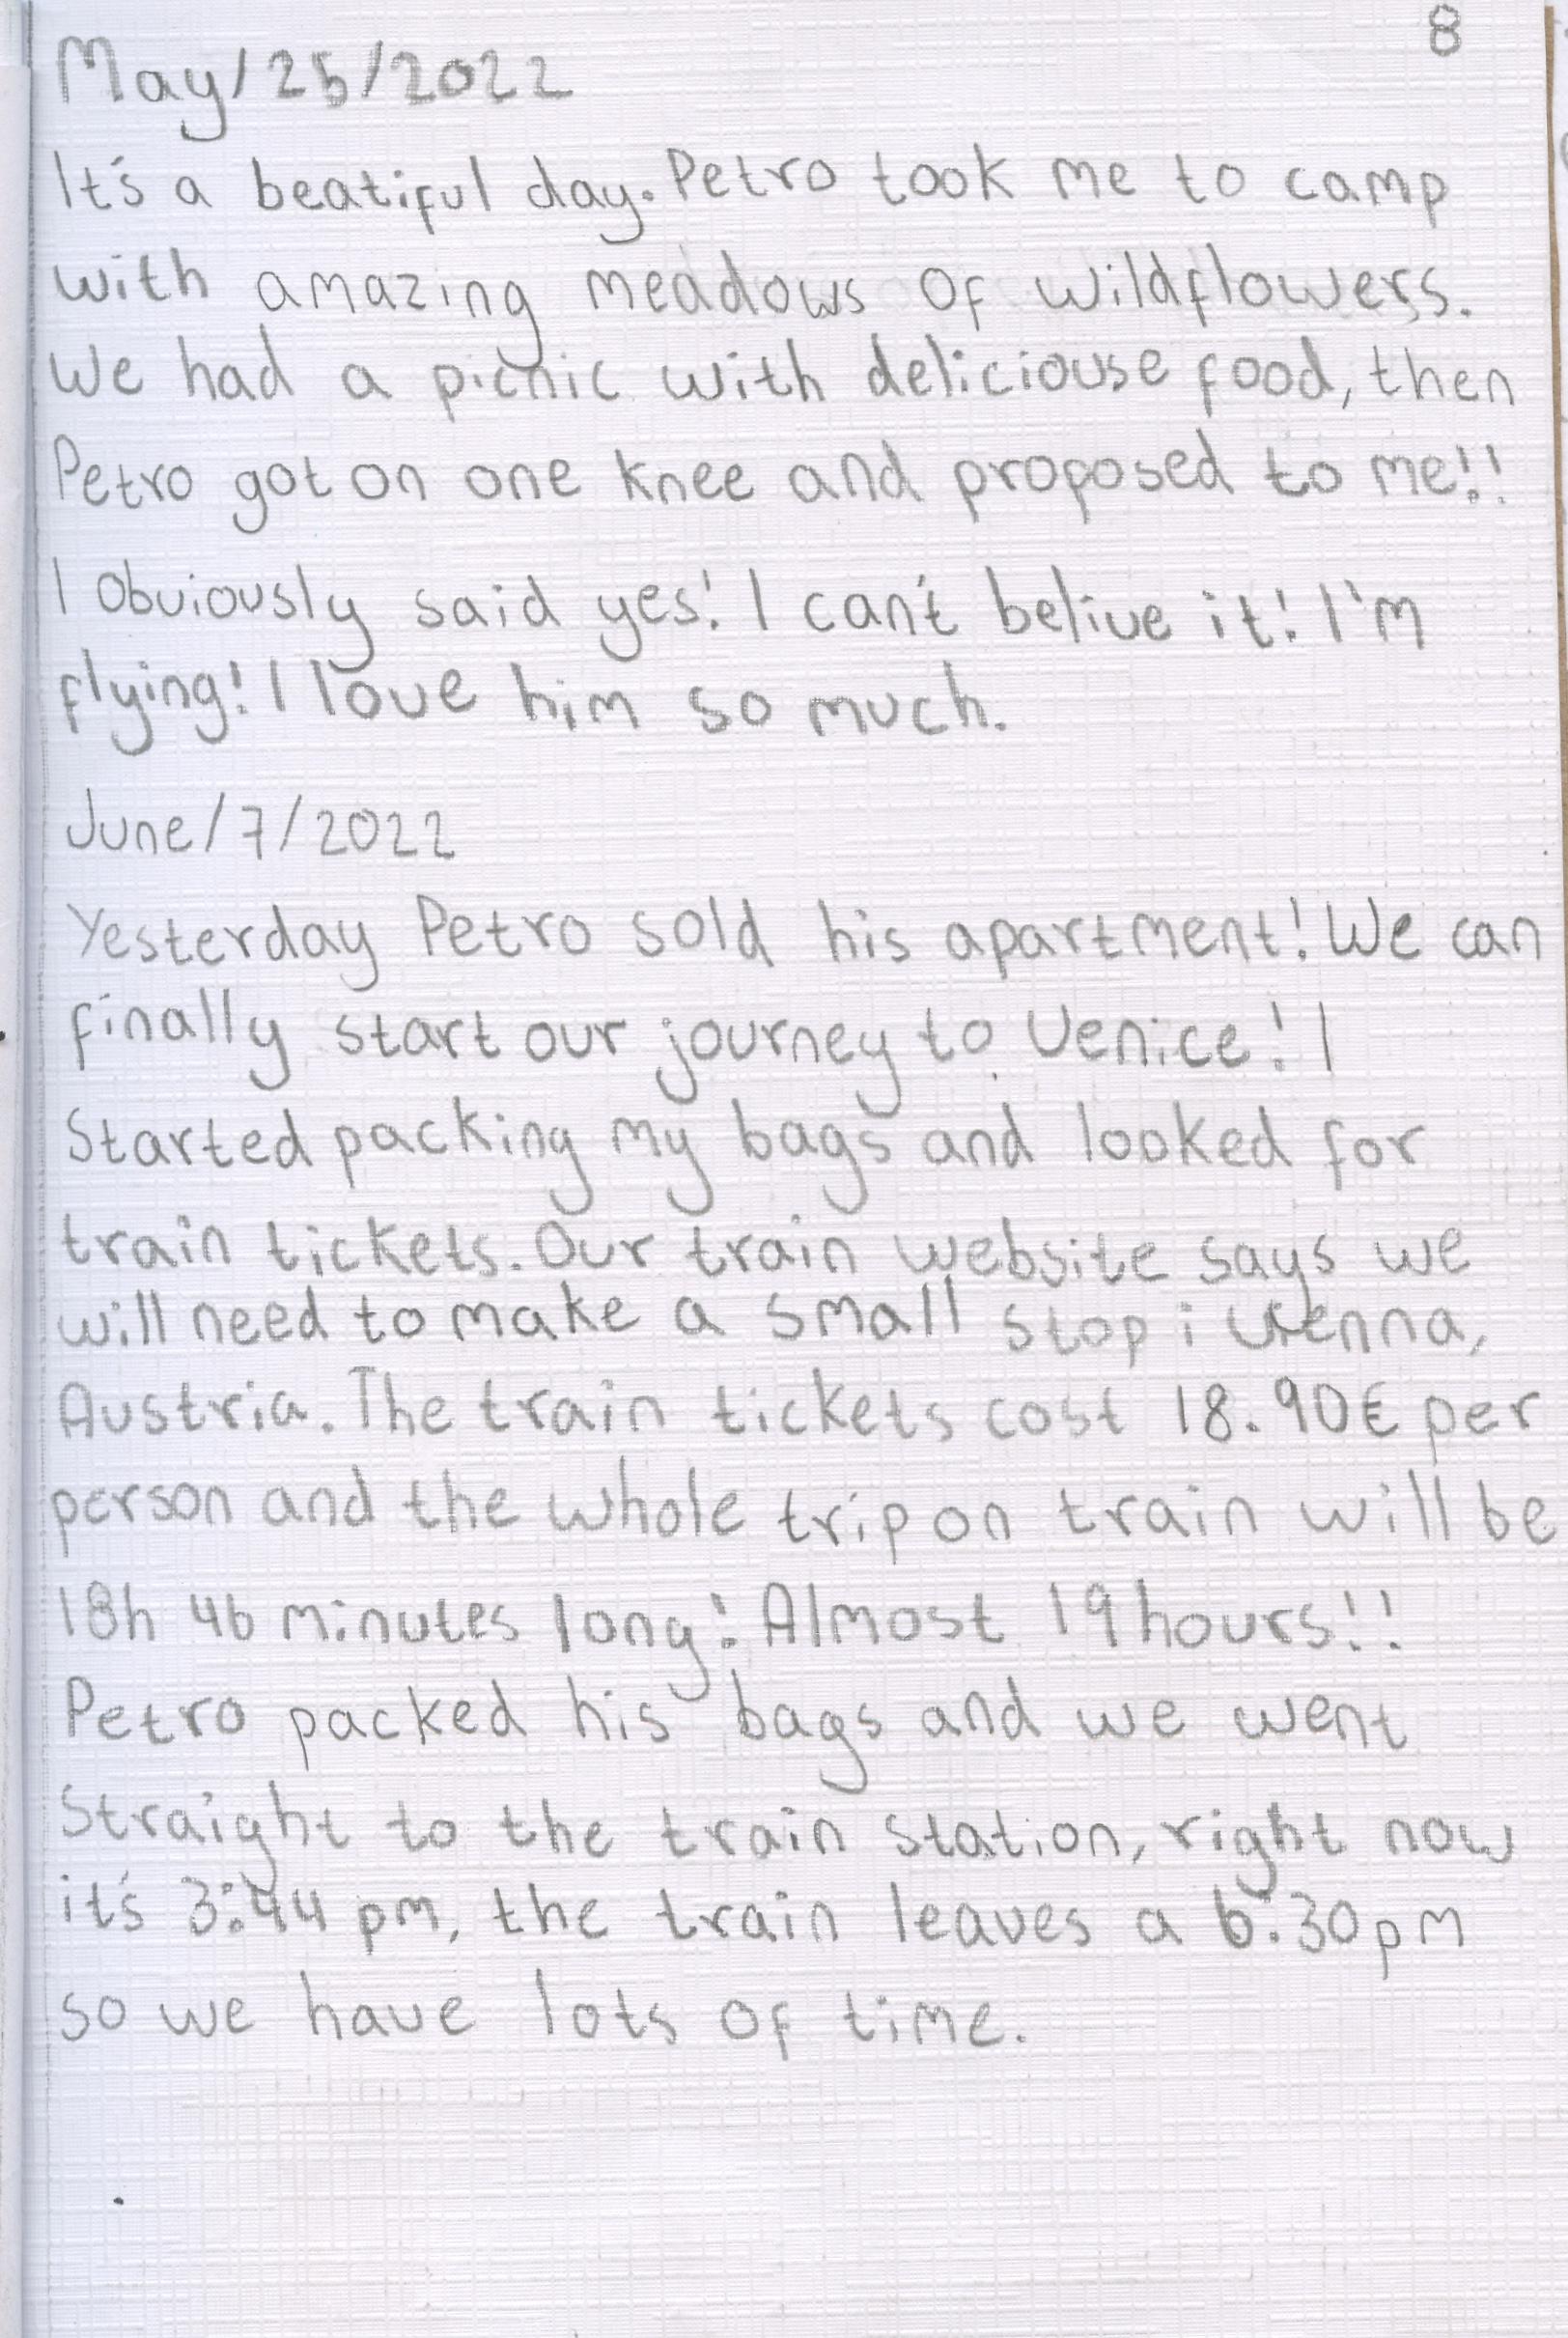 8
May/25/2022
It's a beatiful day. Petro took me to camp
with amazing meadows of wildflowers.
We had a picnic with deliciouse food, then
Petro got on one knee and proposed to me!!
I obviously said yes! I can't belive it! I'm
flying! I love him so much.
June/7/2022
Yesterday Petro sold his apartment! We can
finally start our journey to Venice! I
Started packing my bags and looked for
train tickets. Our train website says we
will need to make a small stop i Vienna,
Austria. The train tickets cost 18.90€ per
person and the whole trip on train will be
18h 46 minutes long! Almost 19 hours!!
Petro packed his bags and we went
Straight to the train station, right now
it's 3:44 pm, the train leaves a 6:30pm
so we have lots of time.